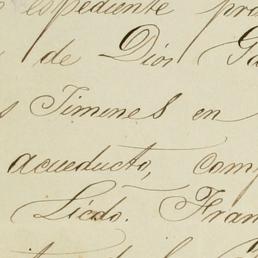 expediente pro
de Dios Ga
s Jimines en
acueducto, comp
Licdo. Fran